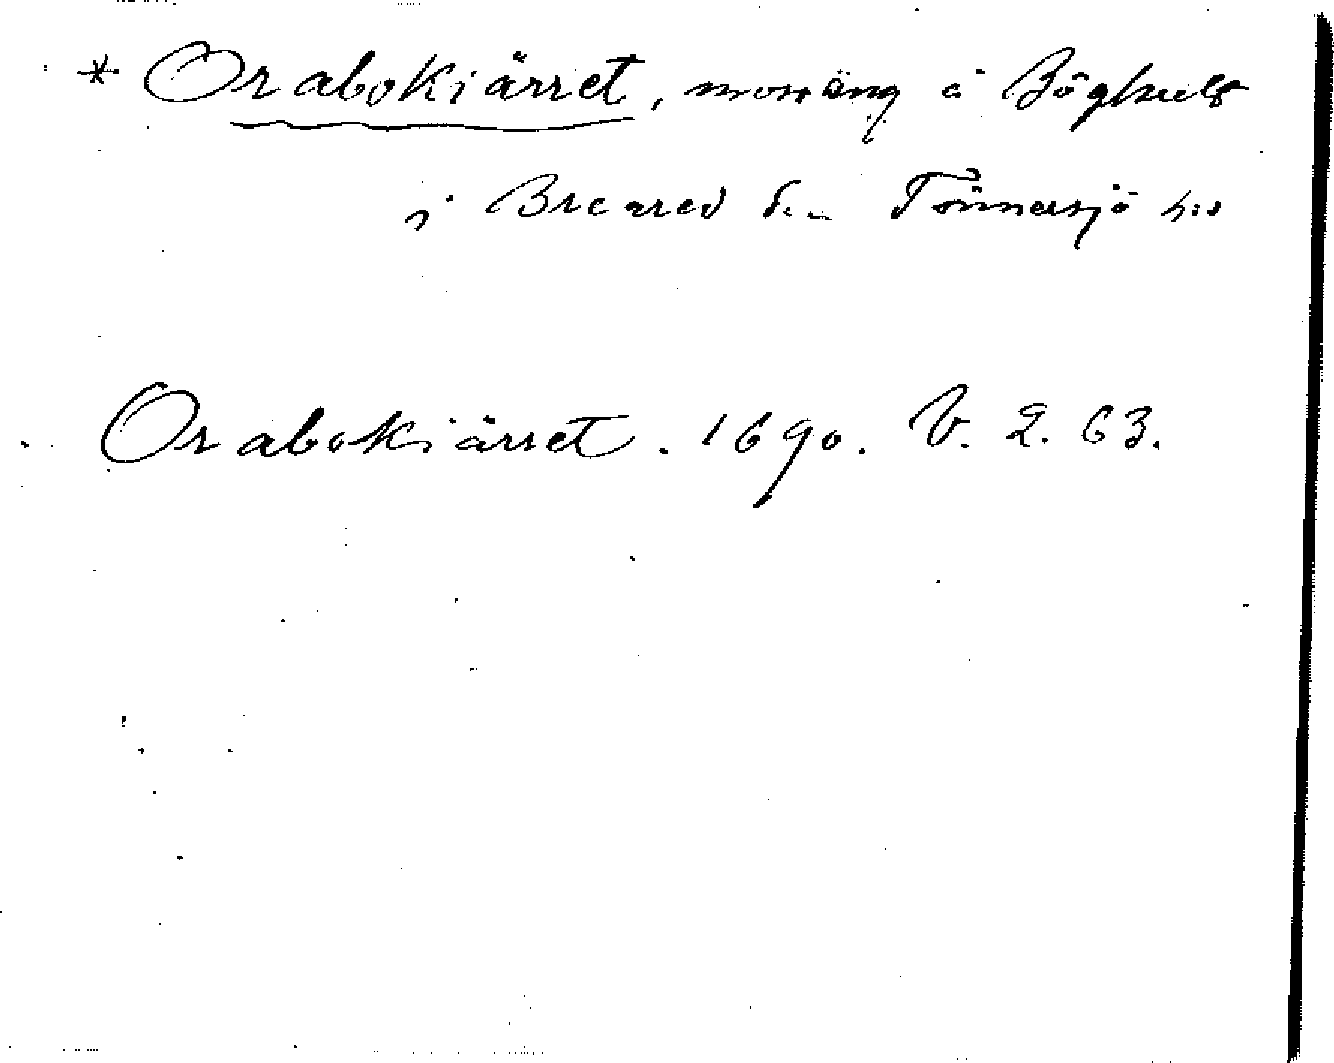 * Orabokiärret, mossäng å Böghult
i Breared sn Tönnersjö hd
Orabokiärret. 1690. V. 2. 63.